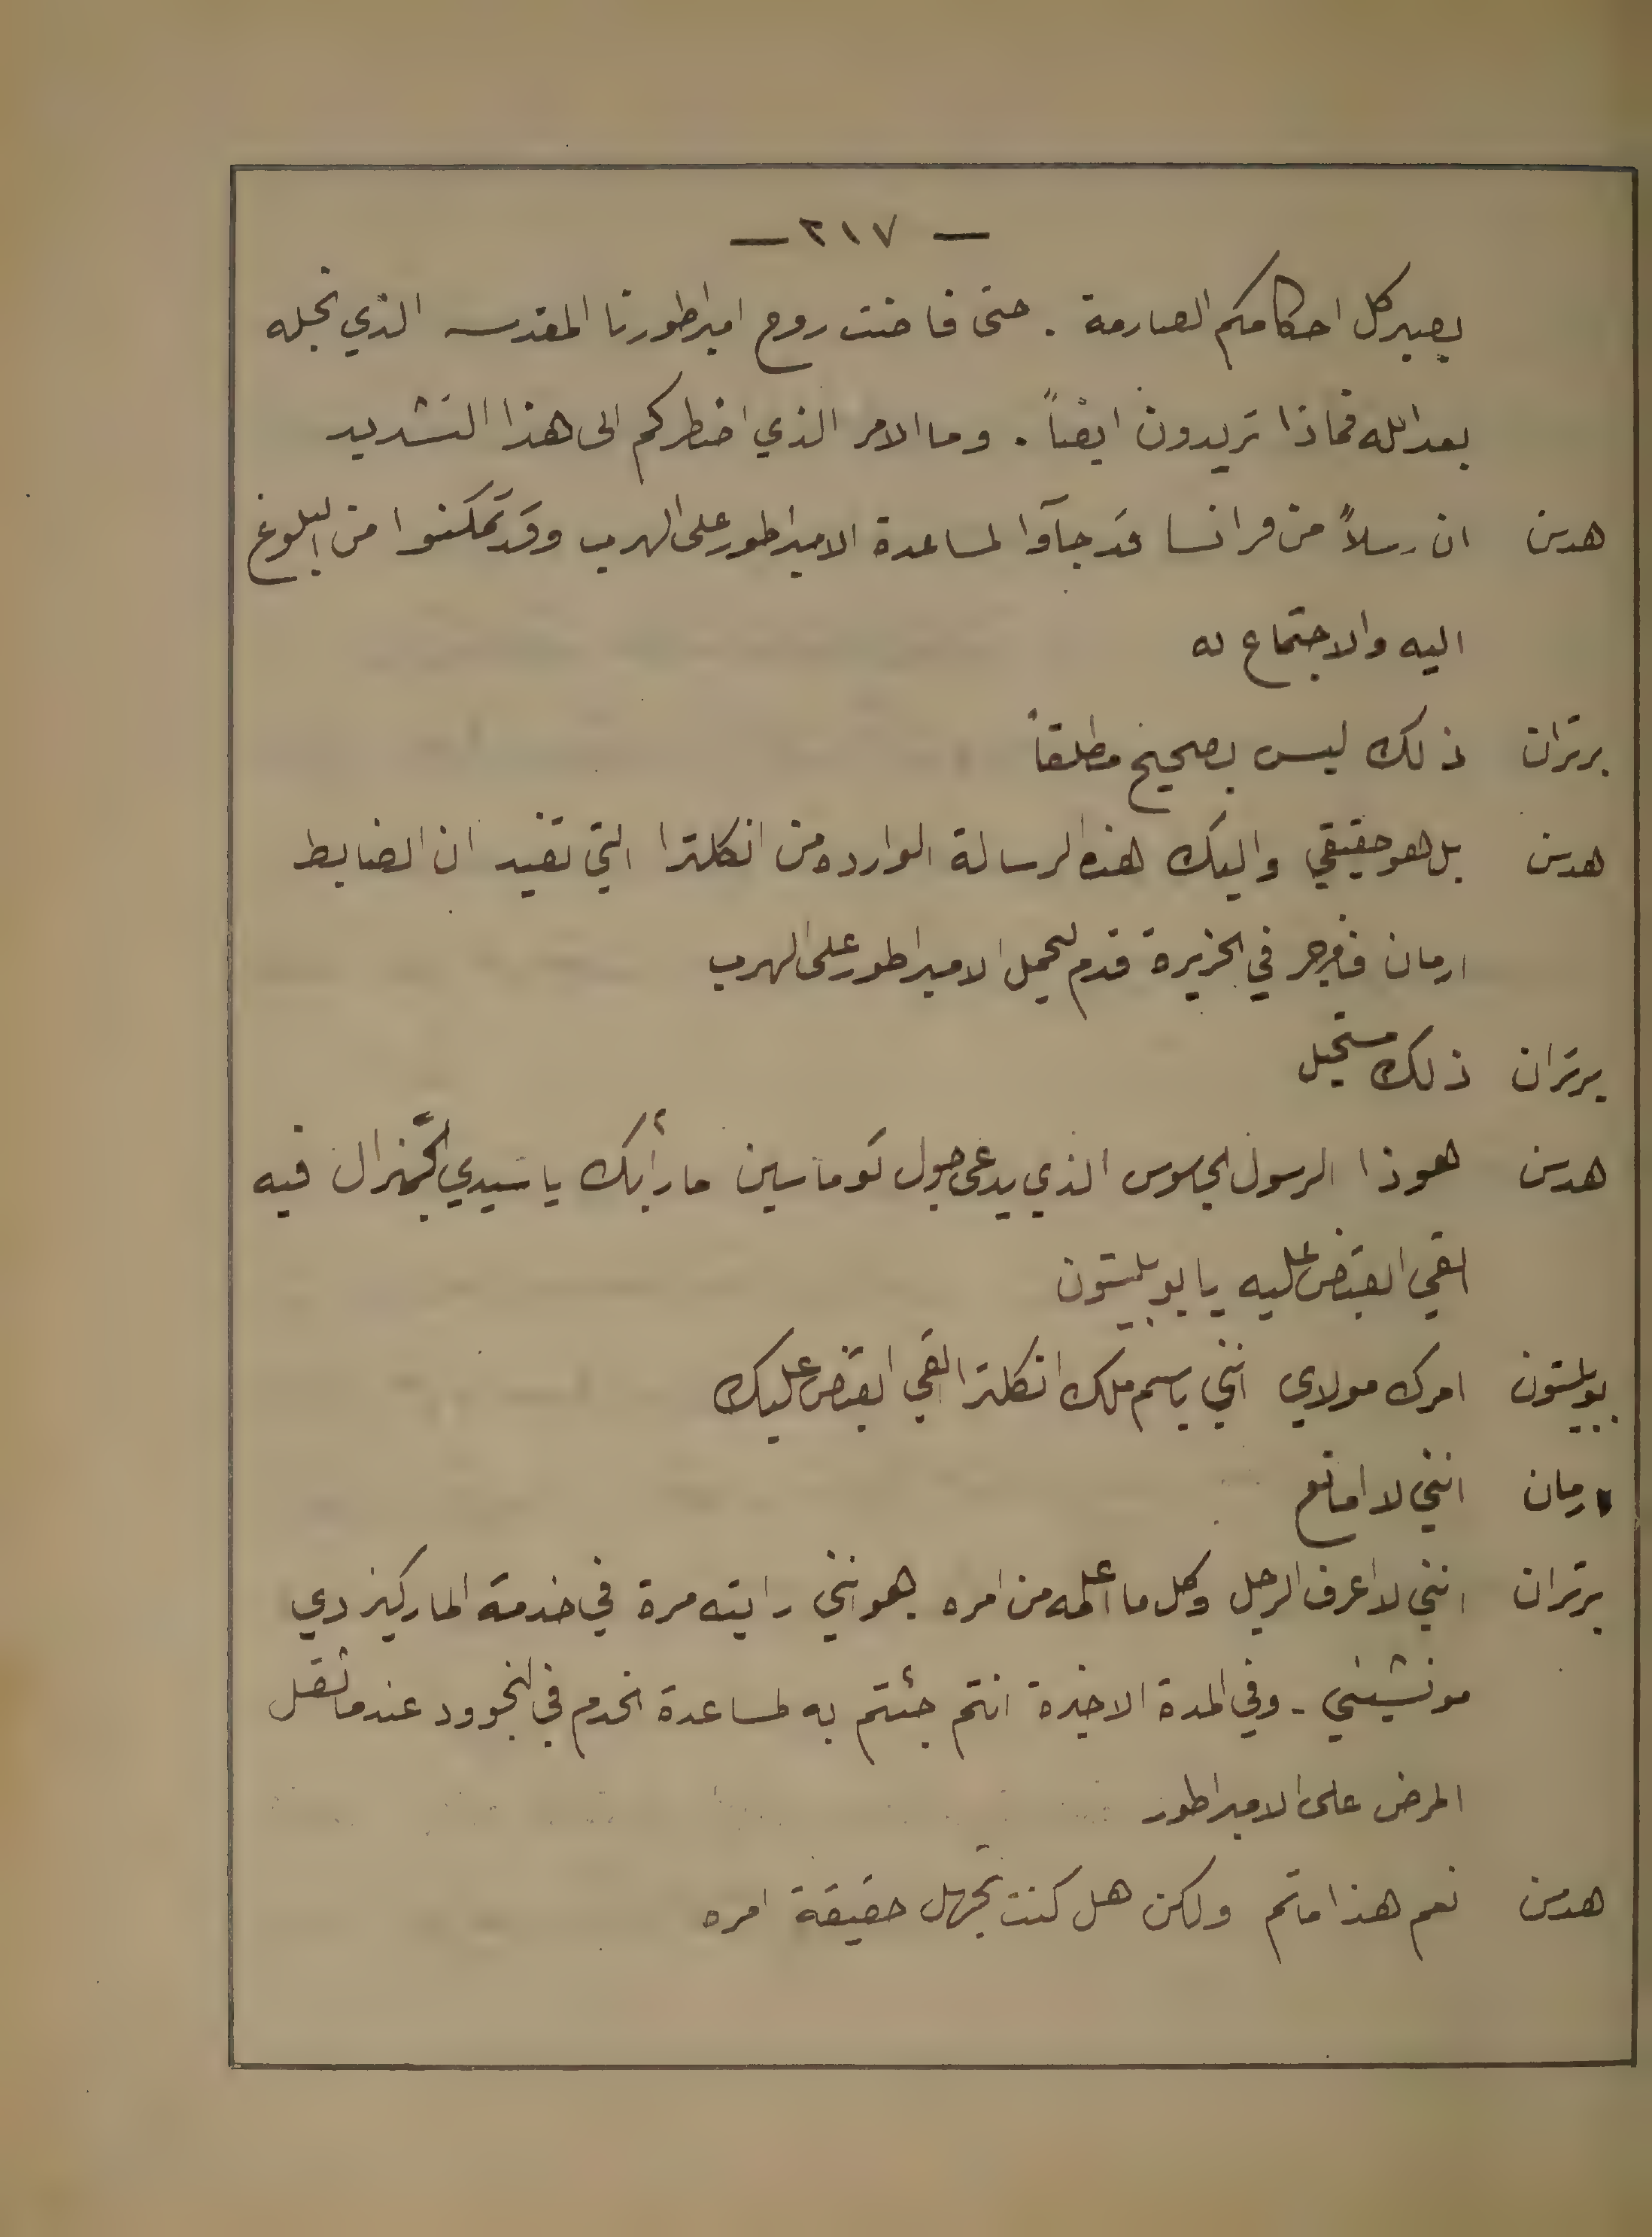 — ٢١٧ —
بصبر كل احكامكم الصارمة . حتى فاضت روح امبراطورنا المقدسه الذي نجله
بعد الله فماذا تريدون ايضاً . وما الامر الذي اضطركم الى هذا التشديد
هدسن ان رسلاً من فرانسا قد جآوا لمساعدة الامبراطور على الهرب وقد تمكنوا من البلوغ
اليه والاجتماع له
برتران ذلك ليس بصحيح مطلقاً
هدسن بل هو حقيقي واليك هذه الرسالة الوارده من انكلترا التي تفيد ان الضابط
ارمان في الجزيرة قدم ليحمل الامبراطور على الهرب
برتران ذلك مستحيل
هدسن هوذا الرسول الجاسوس الذي يدعى جول توماسين ما رأيك يا سيدي الجنرال فيه
القي القبض عليه يا بوبليتون
بوبليتون امرك مولاي انني باسم ملك انكلترا القي القبض عليك
ارمان انني لا امانع
برتران انني لا اعرف الرجل وكل ما اعلمه من امره هو انني رايته مرة في خدمة الماركيز دي
مونشيني - وفي المدة الاخيرة انتم جئتم به لمساعدة الخدم في لنجوود عندما ثقل
المرض على الامبراطور
هدسن نعم هذا ما تم ولكن هل كنت تجهل حقيقة امره